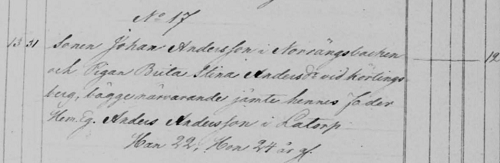 No 17
13 31 Sonen Johan Andersson i Norängsbacken
och Pigan Brita Stina Andersdr vid Körlings-
berg, bägge närvarande jämte hennes Fader
Hem.Eg. Anders Andersson i Latorp.
Han 22, Hon 24 år gl.
19